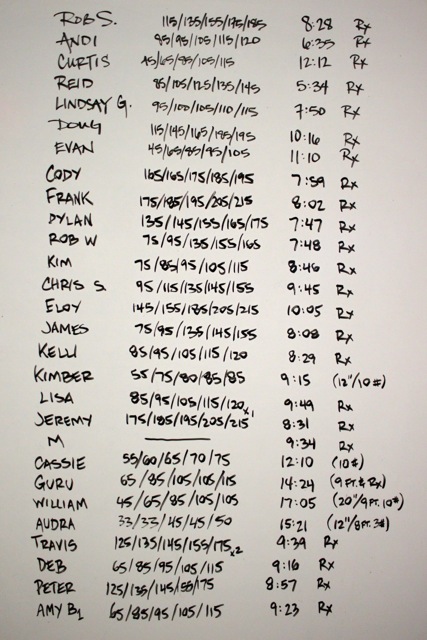 ROB S. 115/135/155/175/185 8:28 Rx
ANDI 95/95/105/115/120 6:35 Rx
CURTIS 45/65/85/105/115 12:12 Rx
REID 85/105/125/135/145 5:34 Rx
LINDSAY G. 95/100/105/110/115 7:50 Rx
DOUG 115/145/165/185/195 10:16 Rx
EVAN 45/65/85/95/105 11:10 Rx
CODY 165/165/175/185/195 7:59 Rx
FRANK 175/185/195/205/215 8:02 Rx
DYLAN 135/145/155/165/175 7:47 Rx
ROB W 75/95/135/155/165 7:48 Rx
KIM 75/85/95/105/115 8:46 Rx
CHRIS S. 95/115/135/145/155 9:45 Rx
ELOY 145/155/185/205/215 10:05 Rx
JAMES 75/95/135/145/155 8:08 Rx
KELLI 85/95/105/115/120 8:29 Rx
KIMBER 55/75/80/85/85 9:15 (12"/10#)
LISA 85/95/105/115/120x1 9:49 Rx
JEREMY 175/185/195/205/215 8:31 Rx
M 9:34 Rx
CASSIE 55/60/65/70/75 12:10 (10#)
GURU 65/85/105/105/115 14:24 (9 FT. & Rx)
WILLIAM 45/65/85/105/105 17:05 (20"/9 FT. 10#)
AUDRA 33/33/45/45/50 15:21 (12"/8 FT. 3#)
TRAVIS 125/135/145/155/175x2 9:39 Rx
DEB 65/85/95/105/115 9:16 Rx
PETER 125/135/145/155/175 8:57 Rx
AMY B. 65/85/95/105/115 9:23 Rx